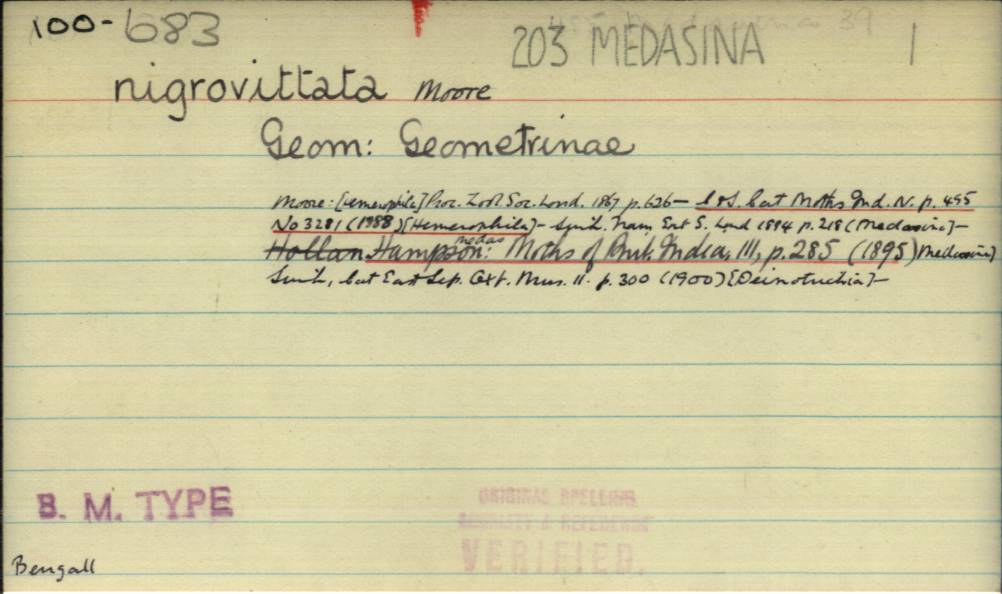 100-683
203 MEDASINA 1
nigrovittata Moore
Geom: Geometrinae
Moore: [Hemerophila] Proc. Zool. Soc. Lond. 1867 p. 626 — C & S. Cat Moths Ind. N. p. 495
No 3281 (1988) [Hemerophila] — Swinh. Tran, Ent S. Lond 1894 p. 218 (Medasina] —
Hollan Hampson: Moths of Brit. India, III, p. 285 (1895) Medasina]
Swinh, Cat East Lep. Oxf. Mus. II. p. 300 (1900) [Deinotrichia] —
B. M. TYPE
ORIGINAL SPELLING
LOCALITY & REFERENCE
VERIFIED.
Bengall